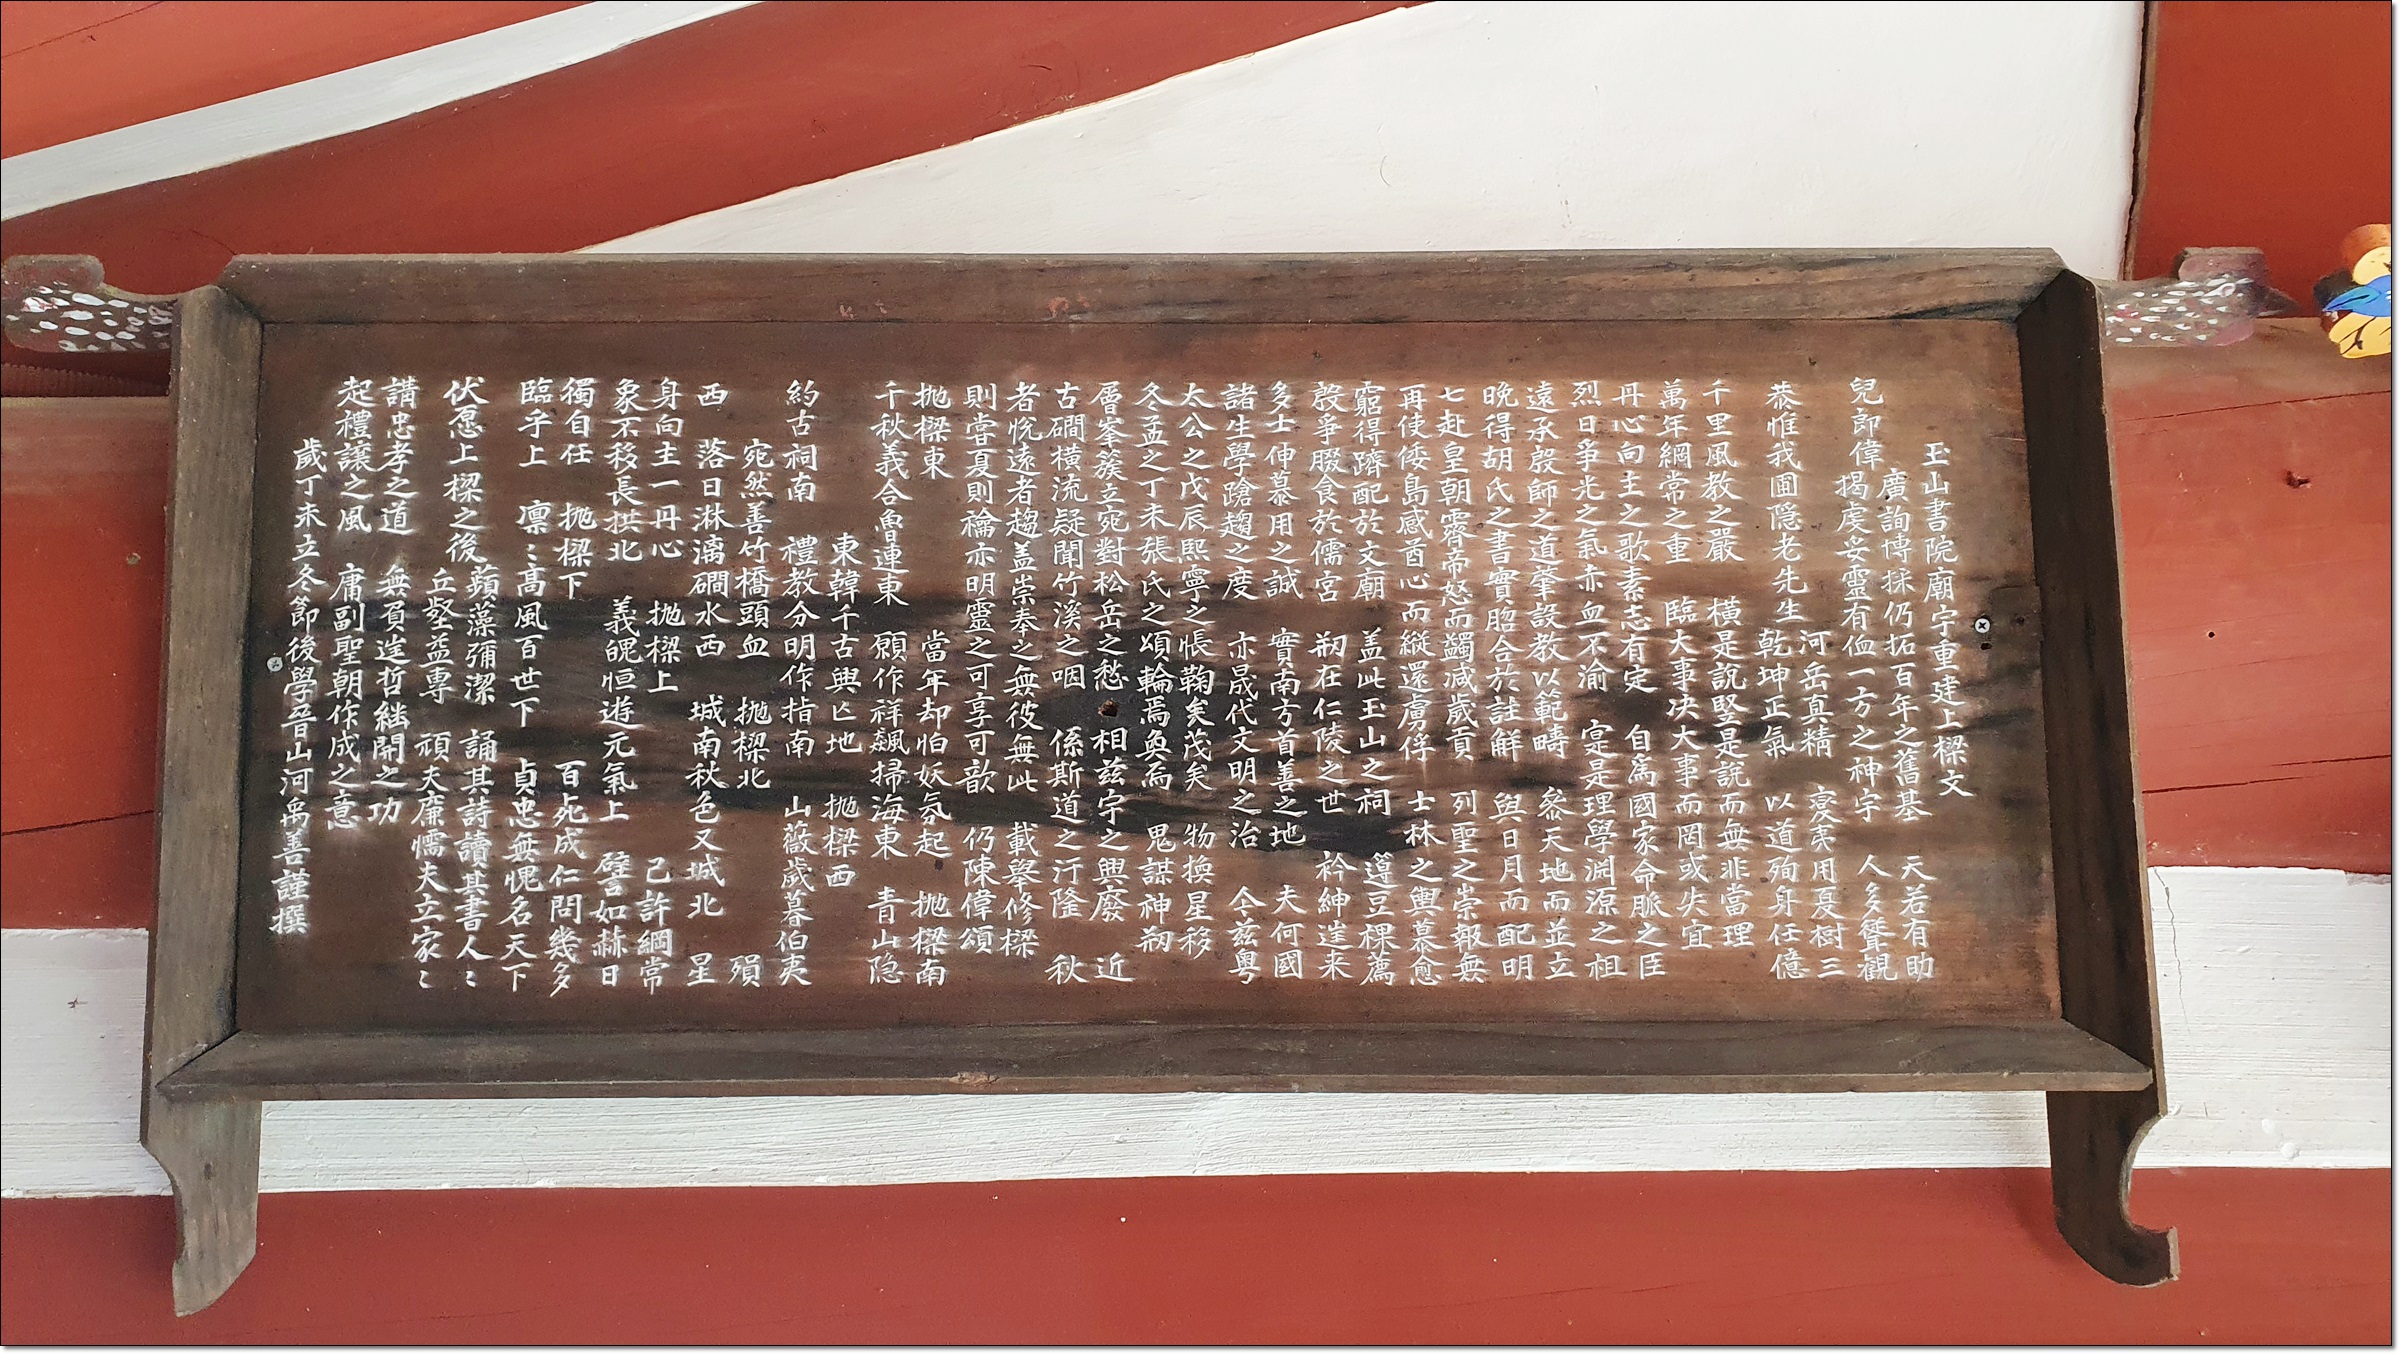 玉山書院廟宇重建上樑文
廣詢博採仍拓百年之舊基 天若有助
兒郎偉 揭虔妥靈有侐一方之神宇 人多聳觀
恭惟我圃隐老先生 河岳真精 變夷用夏樹三
乾坤正氣 以道殉身任億
千里風教之嚴 橫是説竪是說而無非當理
萬年綱常之重 臨大事决大事而罔或失宜
丹心向主之歌素志有定 自爲國家命脈之臣
烈日爭光之氣赤血不渝 寔是理學淵源之祖
遠承殷師之道肇設教以範疇 叅天地而並立
晩得胡氏之書實脗合於註解 與日月而配明
七赴皇朝霽帝怒而蠲减歲貢 列聖之崇報無
再使倭島感酋心而縦還虜俘 士林之輿慕愈
窮得躋配於文廟 盖此玉山之祠 籩豆棵薦
慇爭腏食於儒宮 刱在仁陵之世 衿紳逩来
多士伸慕用之誠 實南方首善之地 夫何國
諸生學蹌趨之度 亦晟代文明之治 今兹粤
太公之戊辰熙寧之悵鞠矣茂矣 物換星移
冬孟之丁未張氏之頌輪焉奐焉 鬼謀神刱
層峯簇立宛對松岳之愁 相兹宇之興廢 近
古磵橫流疑聞竹溪之咽 係斯道之汙隆 秋
者恱遠者趨盖崇奉之無彼無此 載舉修樑
則甞夏則禴亦明靈之可享可歆 仍陳偉頌
抛樑東 當年却怕妖氛起 抛樑南
千秋義合魯連東 願作祥飆掃海東 青山隐
東韓千古興亡地 抛樑西
約古祠南 禮教分明作指南 山薇歲暮伯夷
宛然善竹橋頭血 抛樑北 殞
西 落日淋漓磵水西 城南秋色又城北 星
身向主一丹心 抛樑上 己許綱常
象不移長拱北 義魄恒遊元氣上 譬如赫日
獨自任 抛樑下 百死成仁問幾多
臨乎上 凛〻高風百世下 貞忠無愧名天下
伏願上樑之後 蘋藻彌潔 誦其詩讀其書人〻
丘壑益專 頑夫廉懦夫立家〻
講忠孝之道 無負逩哲継開之功
起禮讓之風 庸副聖朝作成之意
歲丁未立冬節後學晉山河禹善謹撰